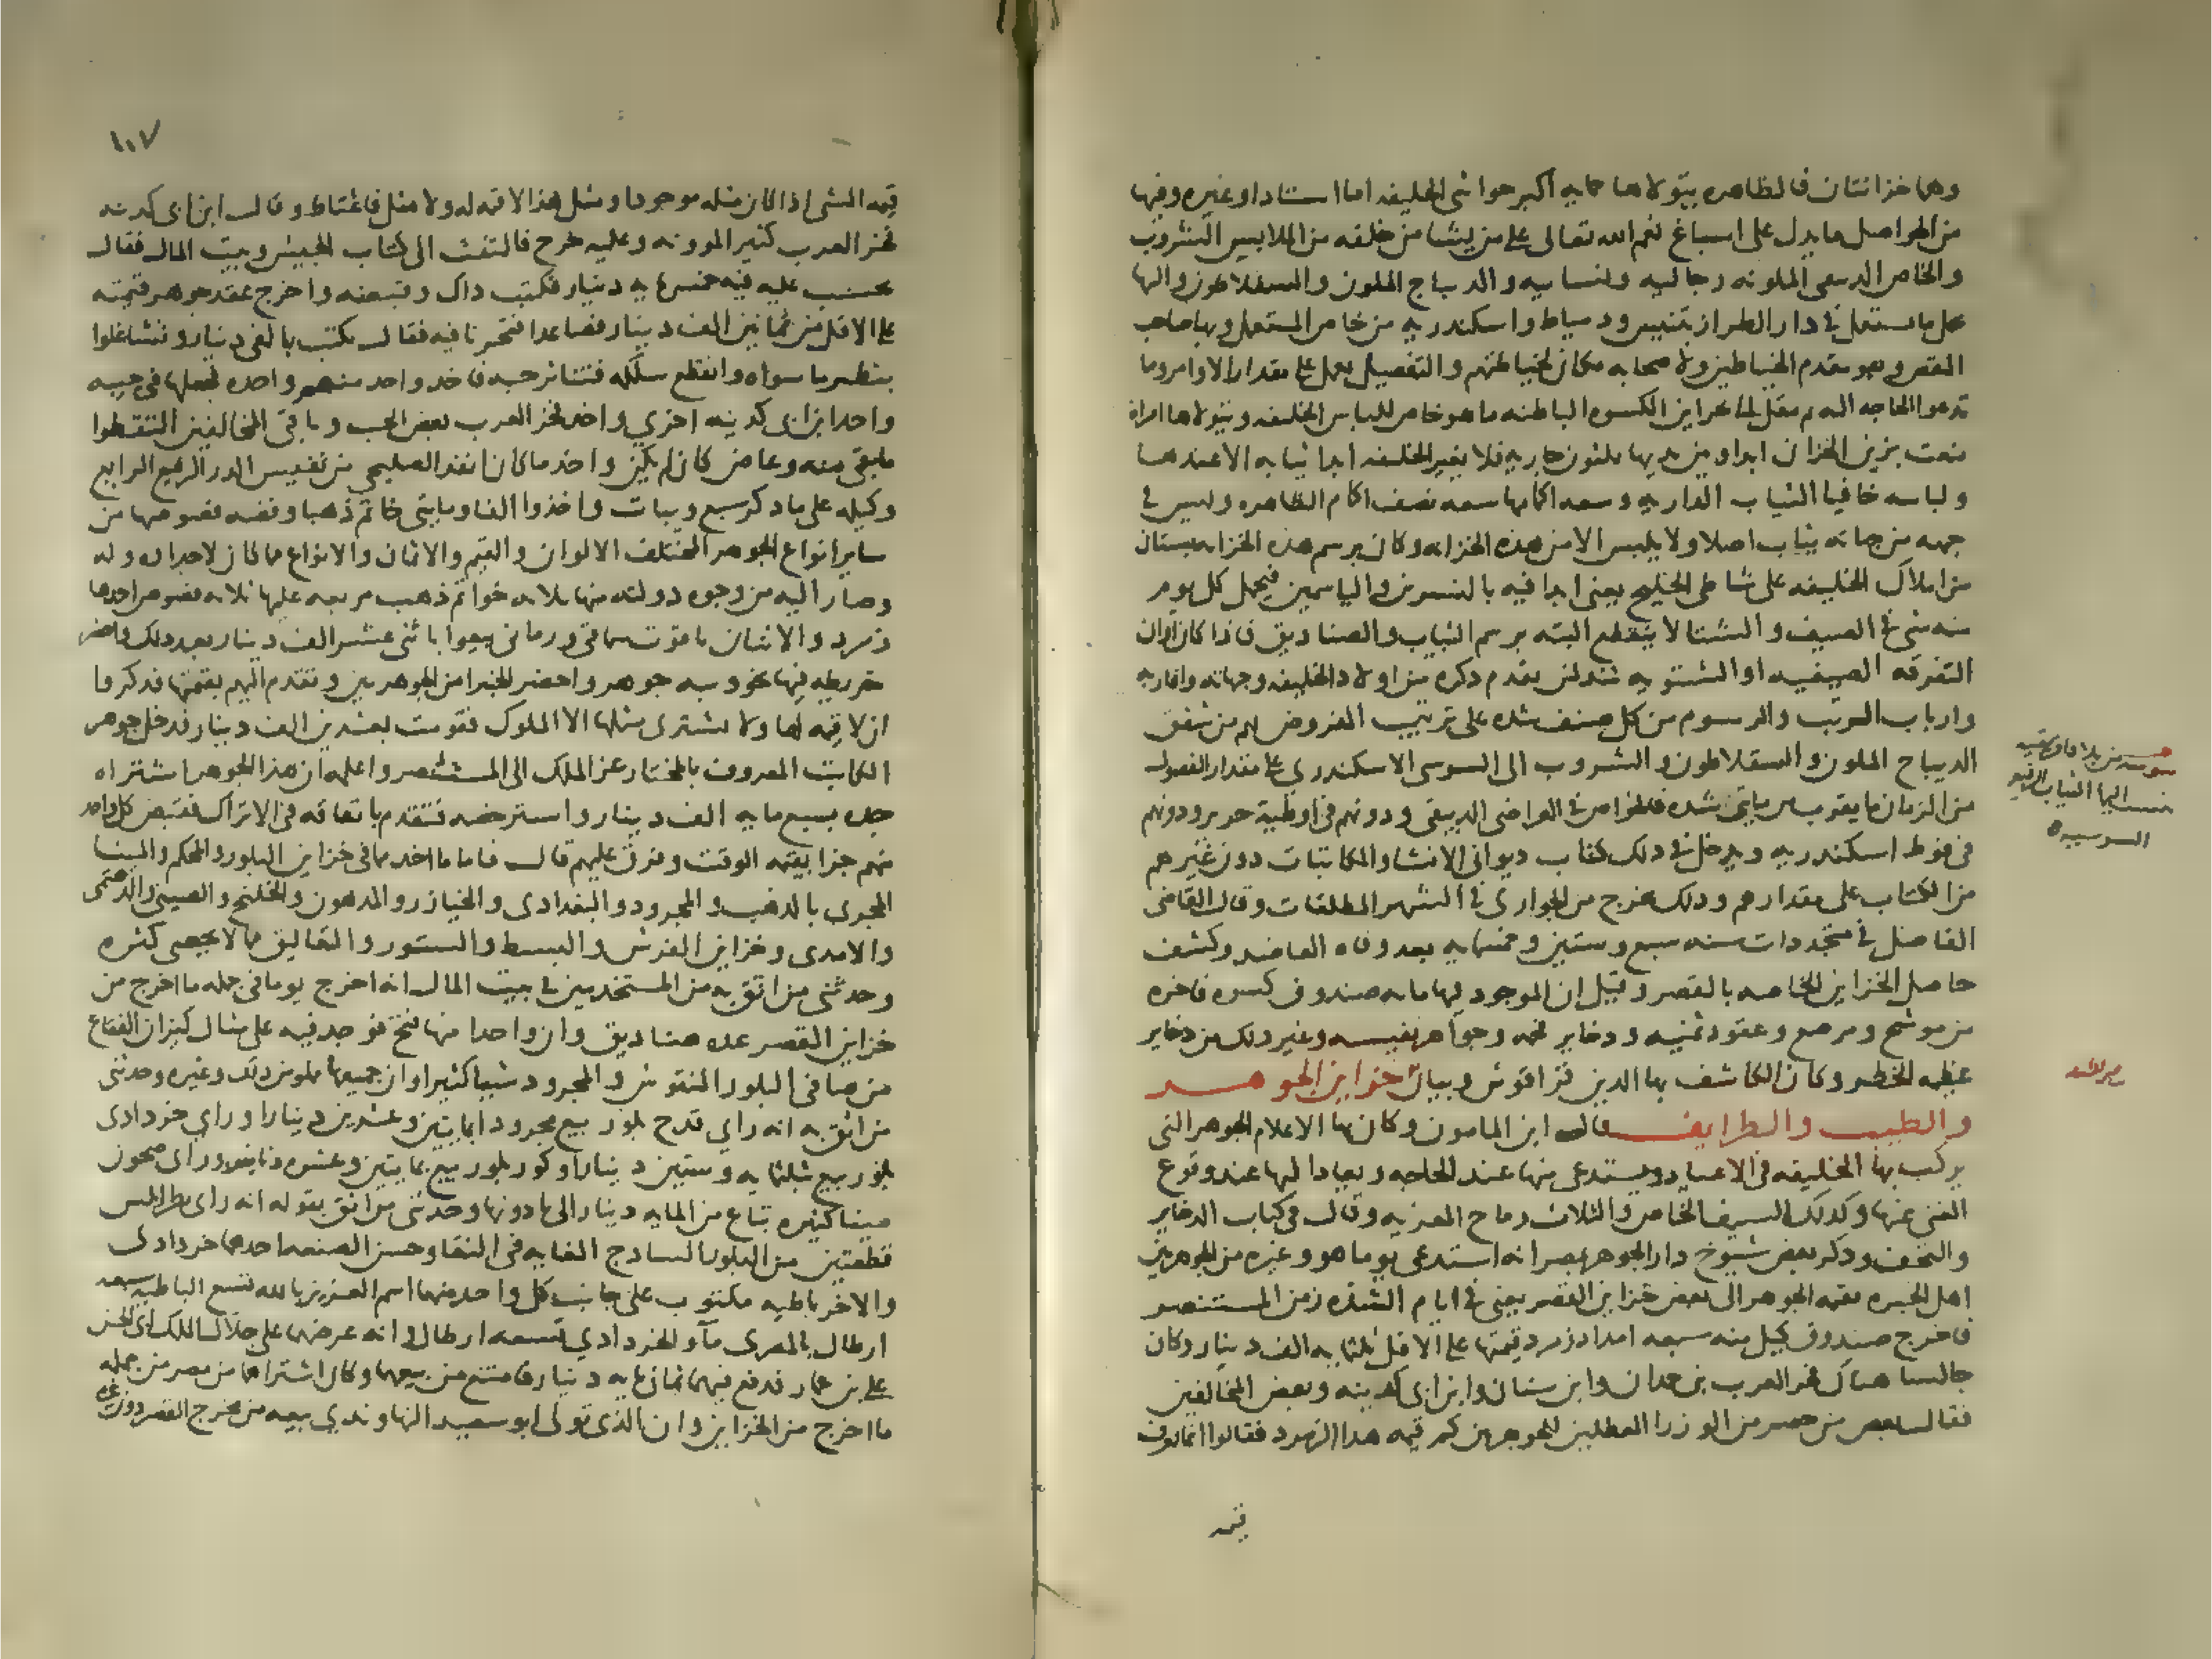 وهما خزانتان فالظاهره يتولاها حمايه اكبر حواشى الخليفه اما استاد او غيره وفيها
من الحواصل ما يدل على اسباغ نعم الله تعالى على من يشا من خلقه من الملابس الشروب
والخاص الدبيقى الملونه رجاليه ونسائيه والديباج الملون والسقلاطون واليها
يحمل ما يستعمل فى دار الطراز بتنيس ودمياط واسكندريه من خاص المستعمل وبها صاحب
المقص وهو مقدم الخياطين ولاصحابه مكان لخياطتهم والتفصيل يعمل على مقدار الاوامر وما
تدعوا الحاجه اليه ثم ينقل الى خزاين الكسوه الباطنه ما هو خاص للباس الخليفه ويتولاها امراه
تنعت بزين الخزان ابدا وبين يديها ثلثون جاريه فلا يغير الخليفه ابدا ثيابه الا عندها
ولباسه خافيا الثياب الداريه وسعه اكمامها سعه نصف اكمام الظاهره وليس فى
جهه من جهاته ثياب اصلا ولا يلبس الا من هذه الخزانه وكان برسم هذه الخزانه بستان
من املاك الخليفه على شاطى الخليج يعنى ابدا فيه بالنسرين والياسمين فيحمل كل يوم
منه شى فى الصيف والشتا لا ينقطع البته برسم الثياب والصناديق فاذا كان اوان
التفرقه الصيفيه او الشتويه شد لمن تقدم ذكره من اولاد الخليفه وجهاته واقاربه
وارباب الرتب والرسوم من كل صنف شده على ترتيب المفروض لهم من شقق
الديباج الملون والسقلاطون والشروب الى السوسى الاسكندرى على مقدار الفصول
من الزمان ما يقرب من مايتى شده فالخواص فى العراضى الدبيقى ودونهم فى اوطية حرير ودونهم
فى فوط اسكندريه ويدخل فى ذلك كتاب ديوانى الانشا والمكاتبات دون غيرهم
من الكتاب على مقدارهم وذلك يخرج من الجوارى فى الشهر المطلقات وقال القاضى
الفاضل فى متجددات سنه سبع وستين وخمسمايه بعد وفاه العاضد وكشف
حاصل الخزاين الخاصه بالقصر وقيل ان الموجود فيها مايه صندوق كسوه فاخره
من موشح ومرصع وعقود ثمينه وذخاير فخمه وجواهر نفيسه وغير ذلك من ذخاير
عظيمه الخطر وكان الكاشف بها الدين قراقوش وبيان خزاين الجوهر
والطيب والطرايف قال ابن المامون وكان بها الاعلام الجوهر التى
يركب بها الخليفه فى الاعياد ويستدعى منها عند الحاجه ويعاد اليها عند وقوع
الغنى عنها وكذلك السيف الخاص والثلاث رماح المعزيه وقال فى كتاب الدخاير
والتحف وذكر بعض شيوخ دار الجوهر بمصر انه استدعى يوما هو وغيره من الجوهريين
اهل الخبره بقيمه الجوهر الى بعض خزاين القصر يعنى فى ايام الشده زمن المستنصر
فاخرج صندوق كيل منه سبعه امداد زمرد قيمتها على الاقل ثلثمايه الف دينار وكان
جالسا هناك فخر العرب بن حمدان وابن سنان وابن ابى كدينه وبعض المخالفين
فقال بعض من حضر من الوزرا المعطلين للجوهريين كم قيمه هدا الزمرد فقالوا انما نعرف
قيمه
سوسه من بلاد افريقيه
تنسب اليها الثياب الرفيعه
السوسيه
١٠٧
قيمه الشى اذا كان مثله موجودا ومثل هذا لا قيمه له ولا مثل فاغتاظ وقال ابن ابى كدينه
فخر العرب كثير الموونه وعليه خرج فالتفت الى كتاب الجيش وبيت المال فقال
يحسب عليه فيه خمسمايه دينار فكتب ذلك وقبضه واخرج عقد جوهر قيمته
على الاقل من ثمانين الف دينار فصاعدا فتحيرنا فيه فقال يكتب بالفى دينار وتشاغلوا
بنظر ما سواه وانقطع سلكه فتناثر حبه فاخذ واحد منهم واحده فجعلها فى جيبه
واخذ ابن ابى كدينه اخرى واخد فخر العرب بعض الحب وباقى المخالفين التقطوا
ما بقى منه وغاض كان لم يكن واخد ما كان انفذ الصليحى من نفيس الدر الرفيع الرايع
وكيله على ما ذكر سبع ويبات واخذوا الفا ومايتى خاتم ذهبا وفضه فصوصها من
ساير انواع الجوهر المختلف الالوان والقيم والاثمان والانواع مما كان لاجداده وله
وصار اليه من وجوه دولته منها ثلاثه خواتم ذهب مربعه عليها ثلاثه فصوص احدها
زمرد والاثنان ياقوت سماقى ورمانى بيعوا باثنى عشر الف دينار بعد ذلك واحضر
خريطه فيها نحو ويبه جوهر واحضر الخبرا من الجوهريين وتقدم اليهم بقيمتها فذكروا
ان لا قيمه لها ولا يشترى مثلها الا الملوك فقومت بعشرين الف دينار فدخل جوهر
الكاتب المعروف بالمختار عز الملك الى المستنصر واعلمه ان هذا الجوهر اشتراه
جده بسبع مايه الف دينار واسترخصه فتقدم بانفاقه فى الاتراك فقبض كل واحد
منهم جزا بقيمه الوقت وفرق عليهم قال فاما ما اخد مما فى خزاين البلور والمحكم والمينا
المجرى بالدهب والمجرود والبغدادى والخيار والمدهون والخلنج والصينى والدهيمى
والامدى وخزاين الفرش والبسط والستور والتعاليق مما لا يحصى كثره
وحدثنى من اثق به من المستخدمين فى بيت المال انه اخرج يوما فى جمله ما اخرج من
خزاين القصر عده صناديق وان واحدا منها فتح فوجد فيه على مثال كيزان الفقاع
من صافى البلور المنقوش والمجرود شيا كثيرا وان جميعها مملو من ذلك وغيره وحدثنى
من اثق به انه راى قدح بلور بيع مجرودا بمايتين وعشرين دينارا وراى خردادى
بلور بيع بثلثمايه وستين دينارا وكوز بلور بيع بمايتين وعشره دنانير وراى صحون
مينا كثيره تباع من المايه دينار الى ما دونها وحدثنى من اثق بقوله انه راى بطرابلس
قطعتين من البلور السادج الغايه فى النقا وحسن الصنعه احدهما خردادى
والاخر باطيه مكتوب على جانب كل واحد منهما اسم العزيز بالله تسع الباطيه سبعه
ارطال بالمصرى مآ والخردادى تسعه ارطال وانه عرضهما على جلال الملك ابى الحسن
على بن عمار فدفع فيهما ثمان مايه دينار فامتنع من بيعهما وكان اشتراهما من مصر من جمله
ما اخرج من الخزاين وان الذى تولى ابو سعيد النهاوندى بيعه من مخرج القصر دون غيره